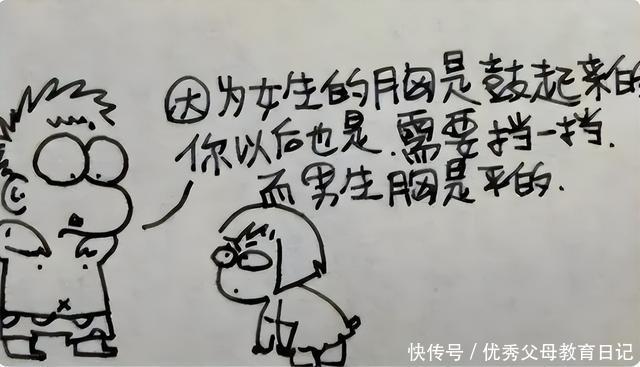 因为女生的胸是鼓起来的
你以后也是.需要挡一挡.
而男生胸是平的.
快传号/优秀父母教育日记